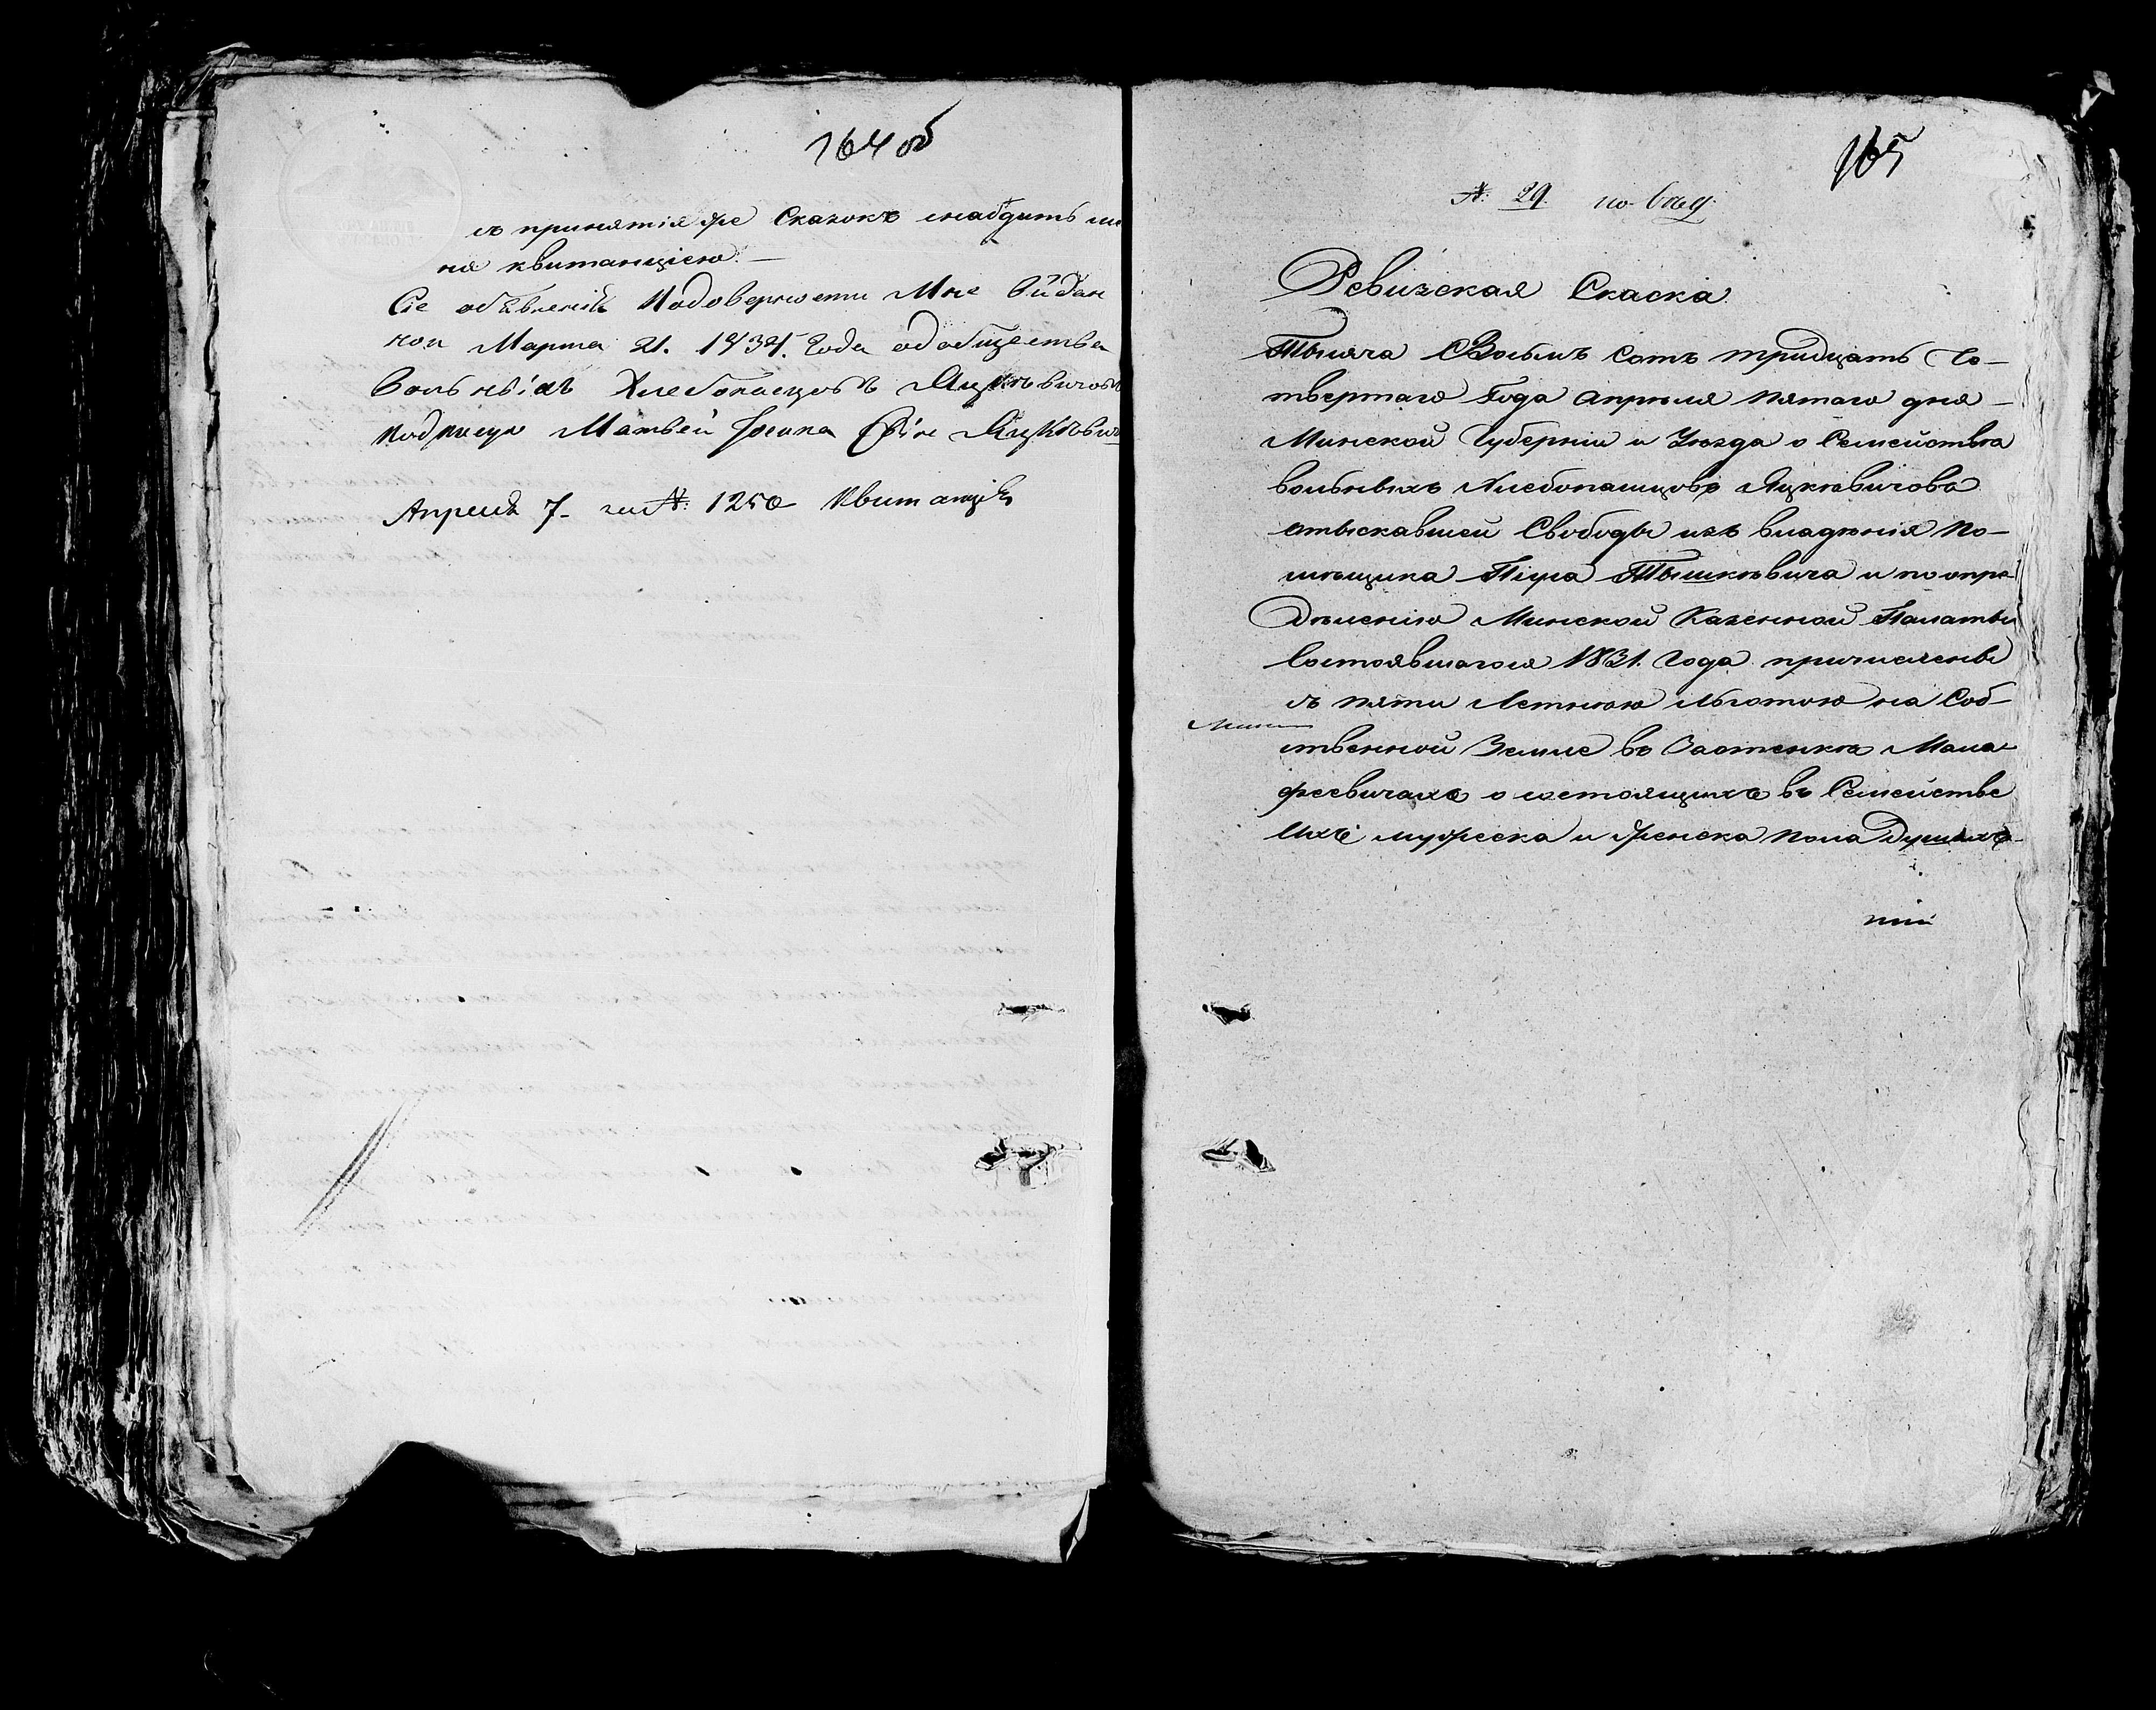 164 об
въ принятія же Сказокъ снабдить ме
ня квитанціею. —
Сіе объявленіе Подоверености Мне Выдан
ной Марта 21. 1834. Года од общества
вольныхъ Хлебопасцовъ Яцкѣвичовъ
подписую Матвей Яцкѣвич
Апреля 7- на №: 1250 Квитанція
165
№: 29.
Ревизская Скаска
Тысяча Восьмъ Сотъ тридцать Че-
твертаго Года апрѣля пятаго дня -
Минской Губерніи и Уѣзда о Семействѣ
вольныхъ Хлебопашцовъ Яцкѣвичовъ
отыскавшей Свободы изъ владѣнія По-
мѣщика Піуса Тышкѣвича и по опре-
Дѣленію Минской Казенной Палаты
Состоявшагося 1831. Года причислены
съ пяти Летнею Льготою на Соб-
ственной Земле въ Застенкѣ Мала
феевичахъ о состоящихъ въ Семействе
ихъ мужеска и женска пола Душахъ-